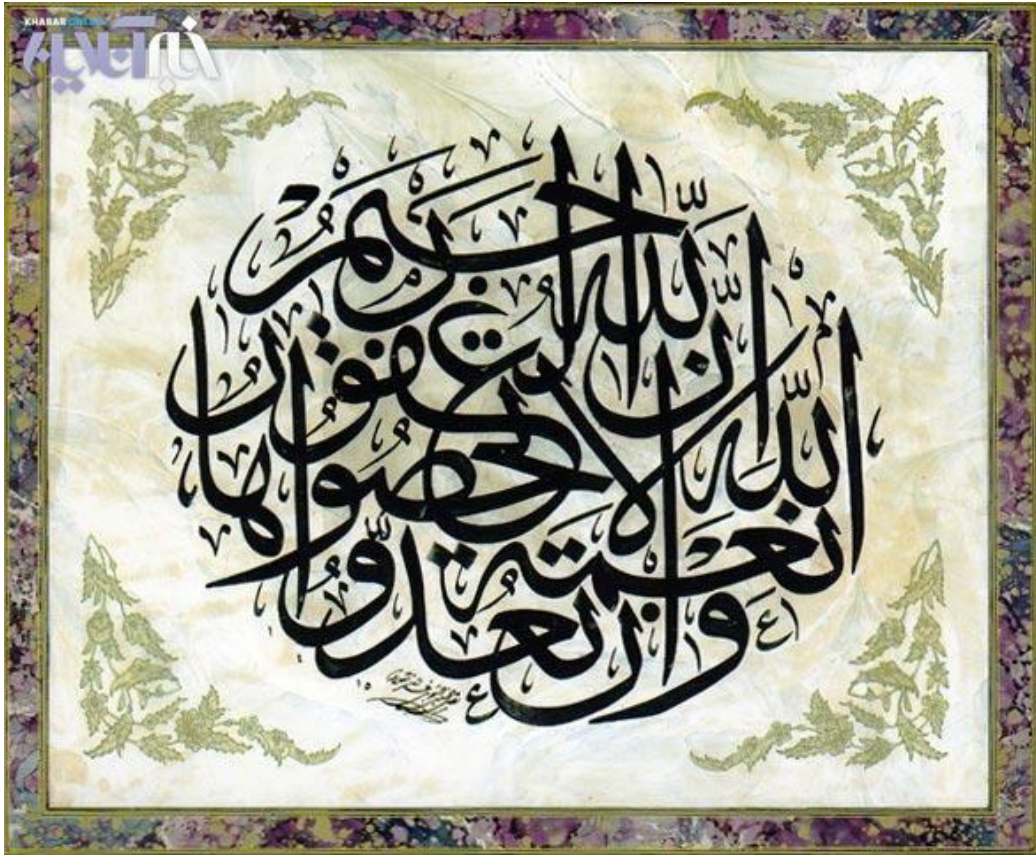 KHABAR ONLINE
خبرآنلاین
وَان تَعُدُّوا نِعْمَةَ اللّٰهِ لَا تُحْصُوهَا اِنَّ اللّٰهَ لَغَفُورٌ رَحِيمٌ